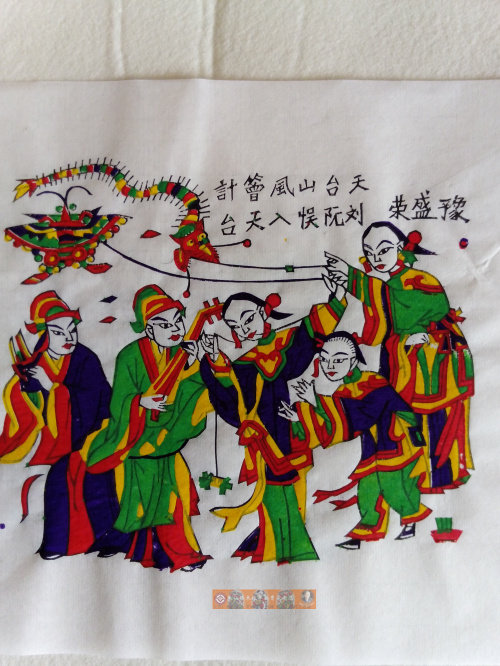 天台山風計
刘阮悮入天台
豫盛荣